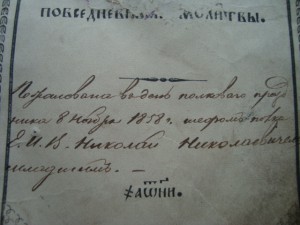 ПОВСЕДНЕВНЫЯ МОЛИТВЫ.
Пожалована въ день полковаго празд
ника 8 Ноября 1858 г. шефомъ полка
Е. И. В. Николай Николаевичем
младшимъ. —
҂АѠНИ.